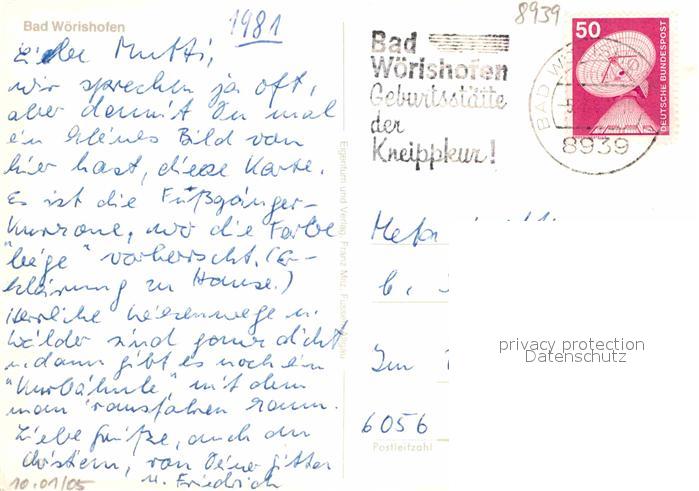 Bad Wörishofen
1981
Liebe Mutti,
wir sprechen ja oft,
aber damit Du mal
ein kleines Bild von
hier hast, diese Karte.
Es ist die Fußgänger-
Kurzone, wo die Farbe
"beige" vorherrscht. (Er-
klärung zu Hause.)
Herrliche Wiesenwege u.
Wälder sind ganz dicht
u. dann gibt es noch ein
"Kurbähnle", mit dem
man rausfahren kann.
Liebe Grüße, auch an
von Deiner
u. Friedrich
10.01/05
Eigentum und Verlag Franz Milz, Füssen
8939
Bad
Wörishofen
Geburtsstätte
der
Kneippkur!
BAD WÖRISHOFEN
8939
50
DEUTSCHE BUNDESPOST
6056
Postleitzahl
privacy protection
Datenschutz